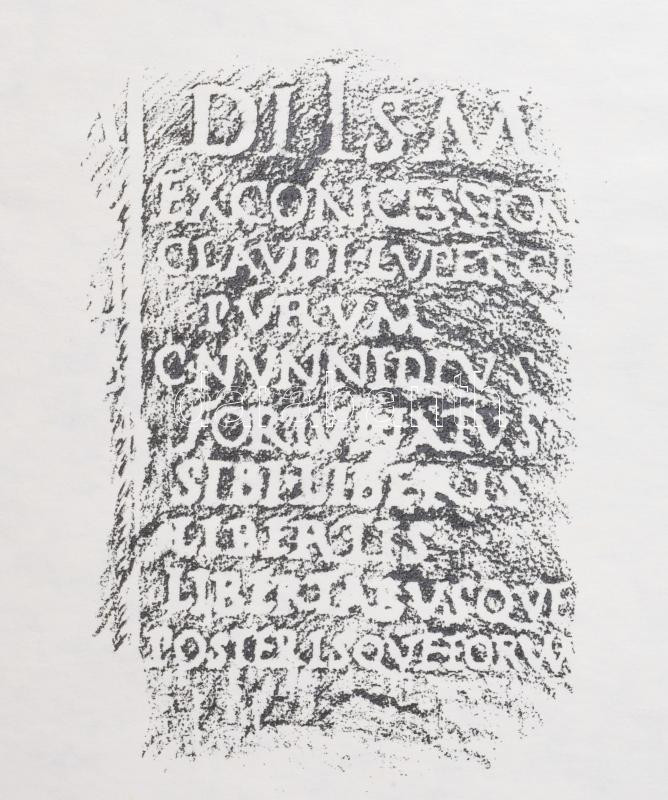 DIISM
EXCONCESSION
CLAVDILUPERCI
PVRVM
CNVNNIDIVS
FORTVNATVS
SIBEILIBERIS
LIBERTIS
LIBERTABVSQVE
POSTERISQVEEORVM
darabanth